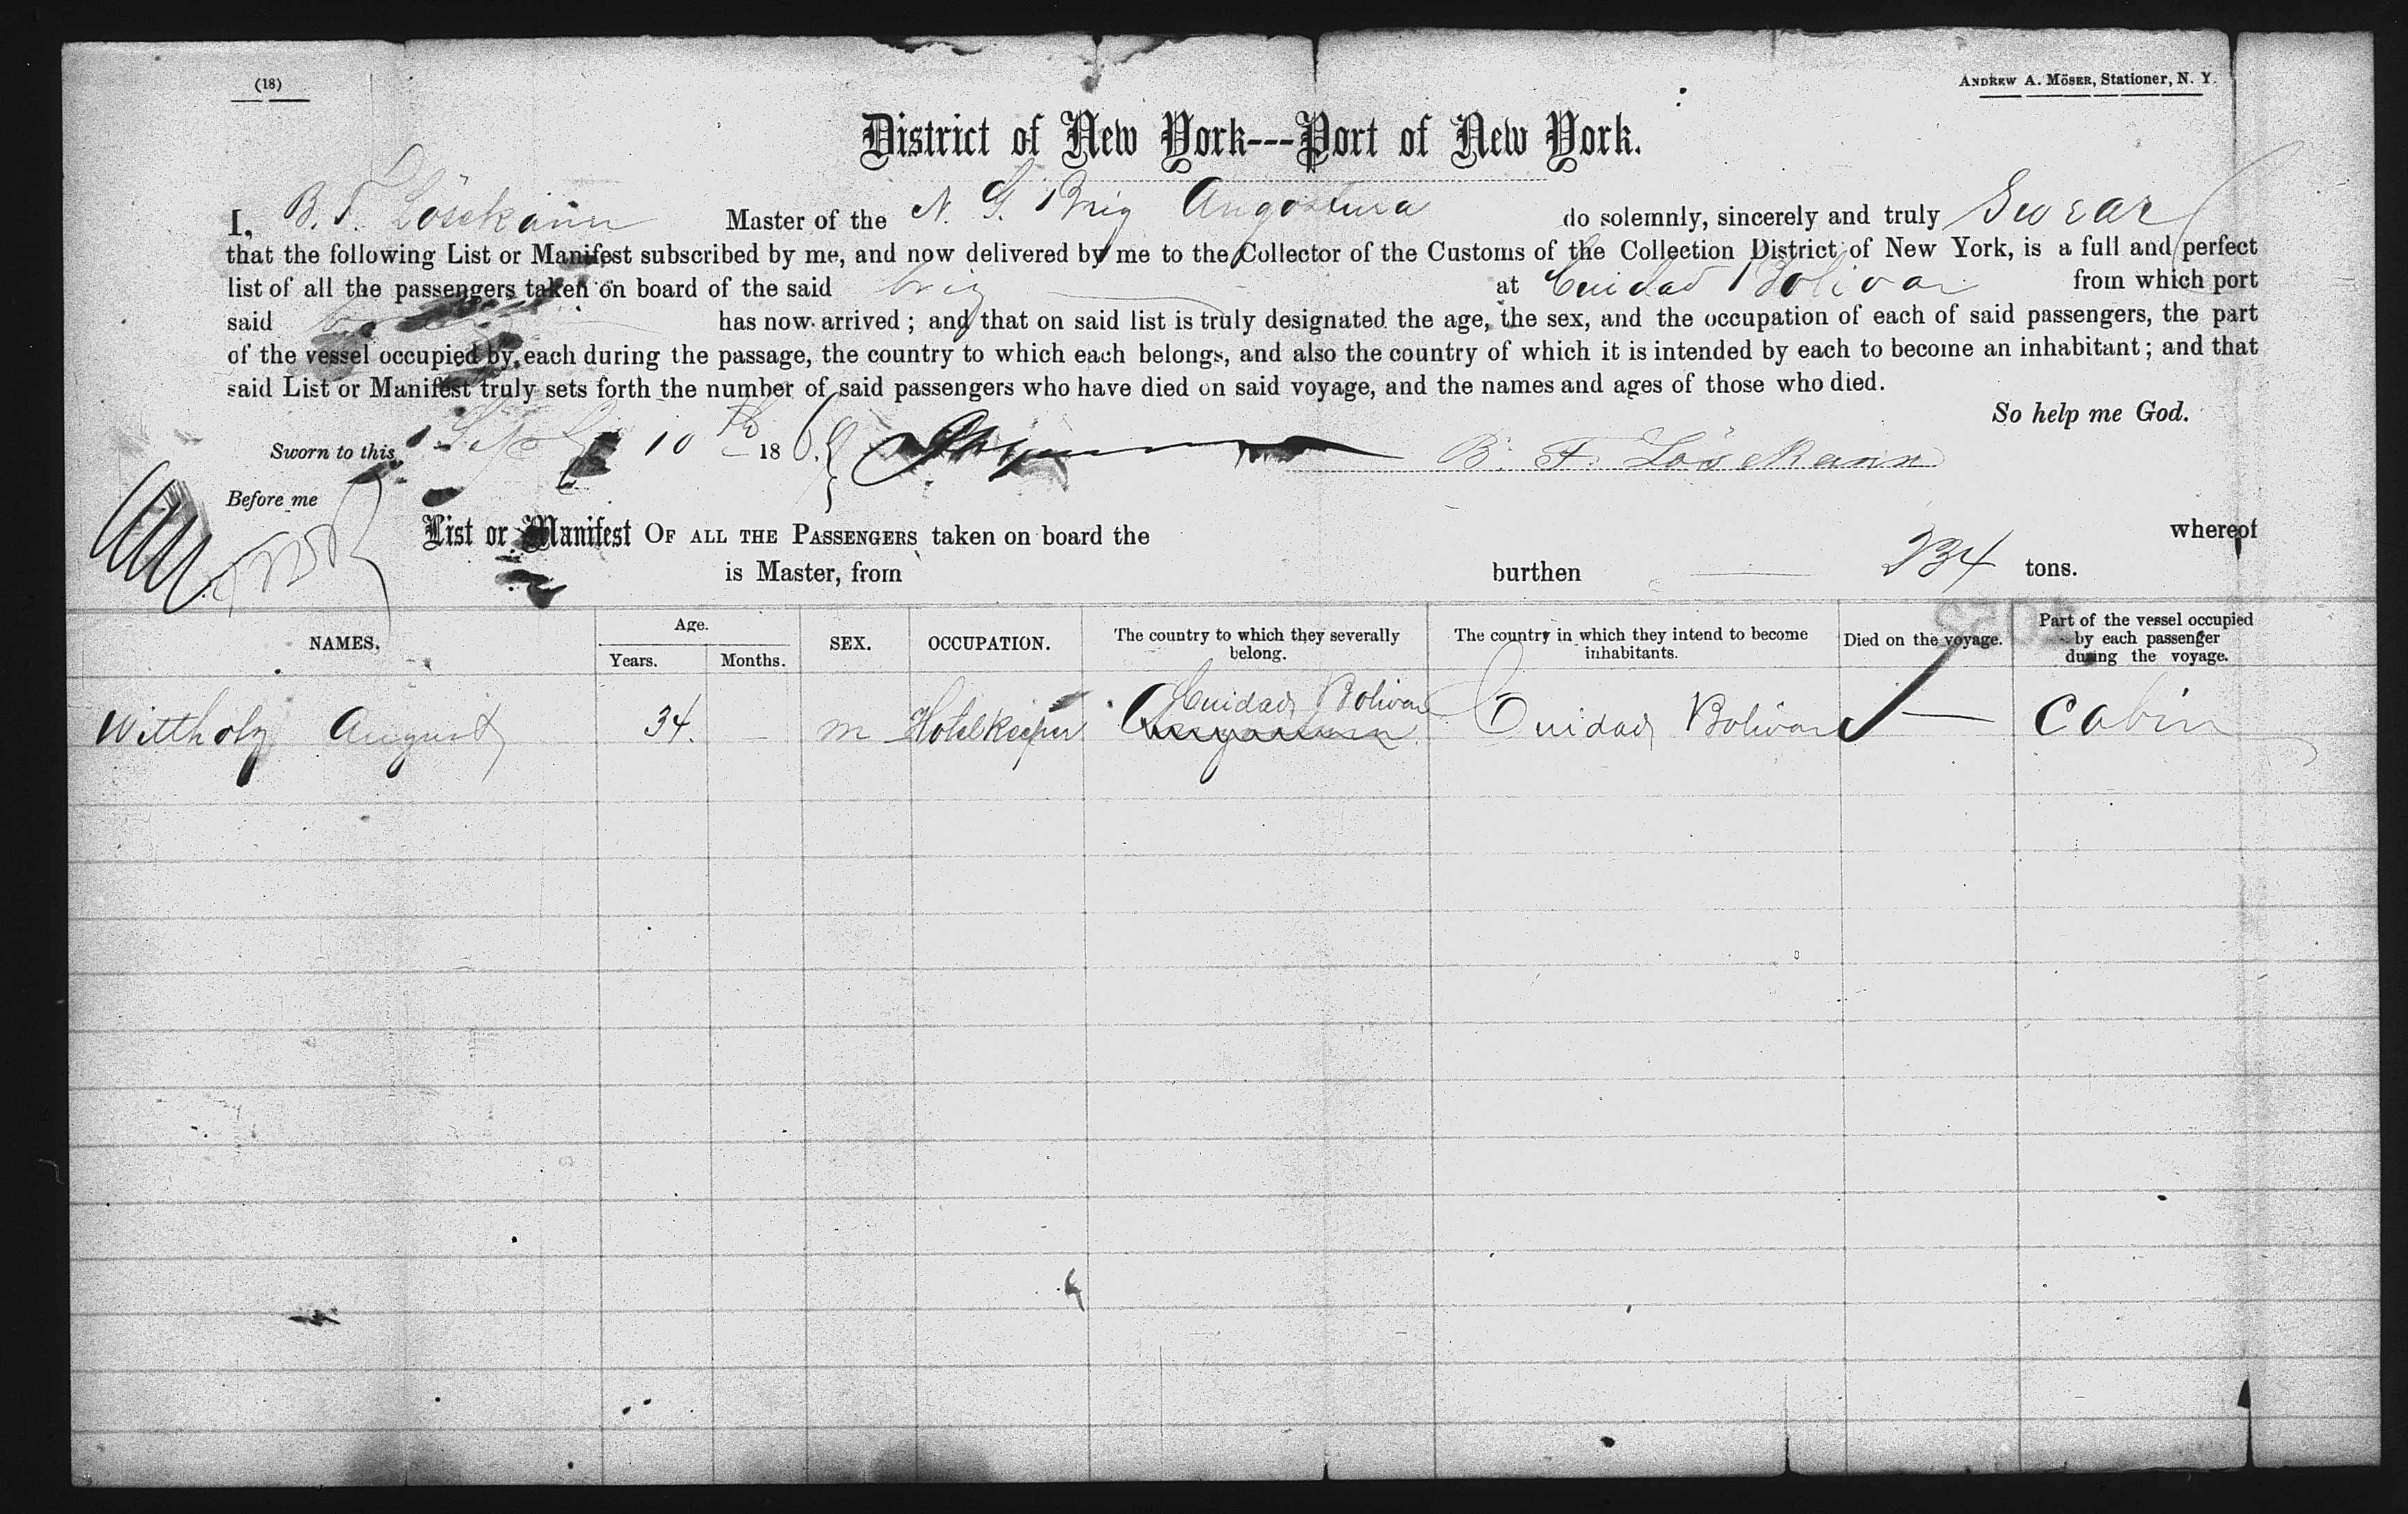 (18)
ANDREW A. MÖSER, Stationer, N. Y.
District of New York---Port of New York.
I, B. F. Lösekann Master of the N. G. Brig Angostura do solemnly, sincerely and truly Swear
that the following List or Manifest subscribed by me, and now delivered by me to the Collector of the Customs of the Collection District of New York, is a full and perfect
list of all the passengers taken on board of the said brig at Cuidad Bolivar from which port
said has now arrived; and that on said list is truly designated the age, the sex, and the occupation of each of said passengers, the part
of the vessel occupied by each during the passage, the country to which each belongs, and also the country of which it is intended by each to become an inhabitant; and that
said List or Manifest truly sets forth the number of said passengers who have died on said voyage, and the names and ages of those who died.
So help me God.
Sworn to this Sept 10th 186 B. F. Löseckann
Before me
List or Manifest OF ALL THE PASSENGERS taken on board the whereof
is Master, from burthen 234 tons.
NAMES. Age. Years. Months. SEX. OCCUPATION. The country to which they severally belong. The country in which they intend to become inhabitants. Died on the voyage. Part of the vessel occupied by each passenger during the voyage.
Wittholz August 34. — m Hotelkeeper Angostura Cuidad Bolivar Cuidad Bolivar — Cabin